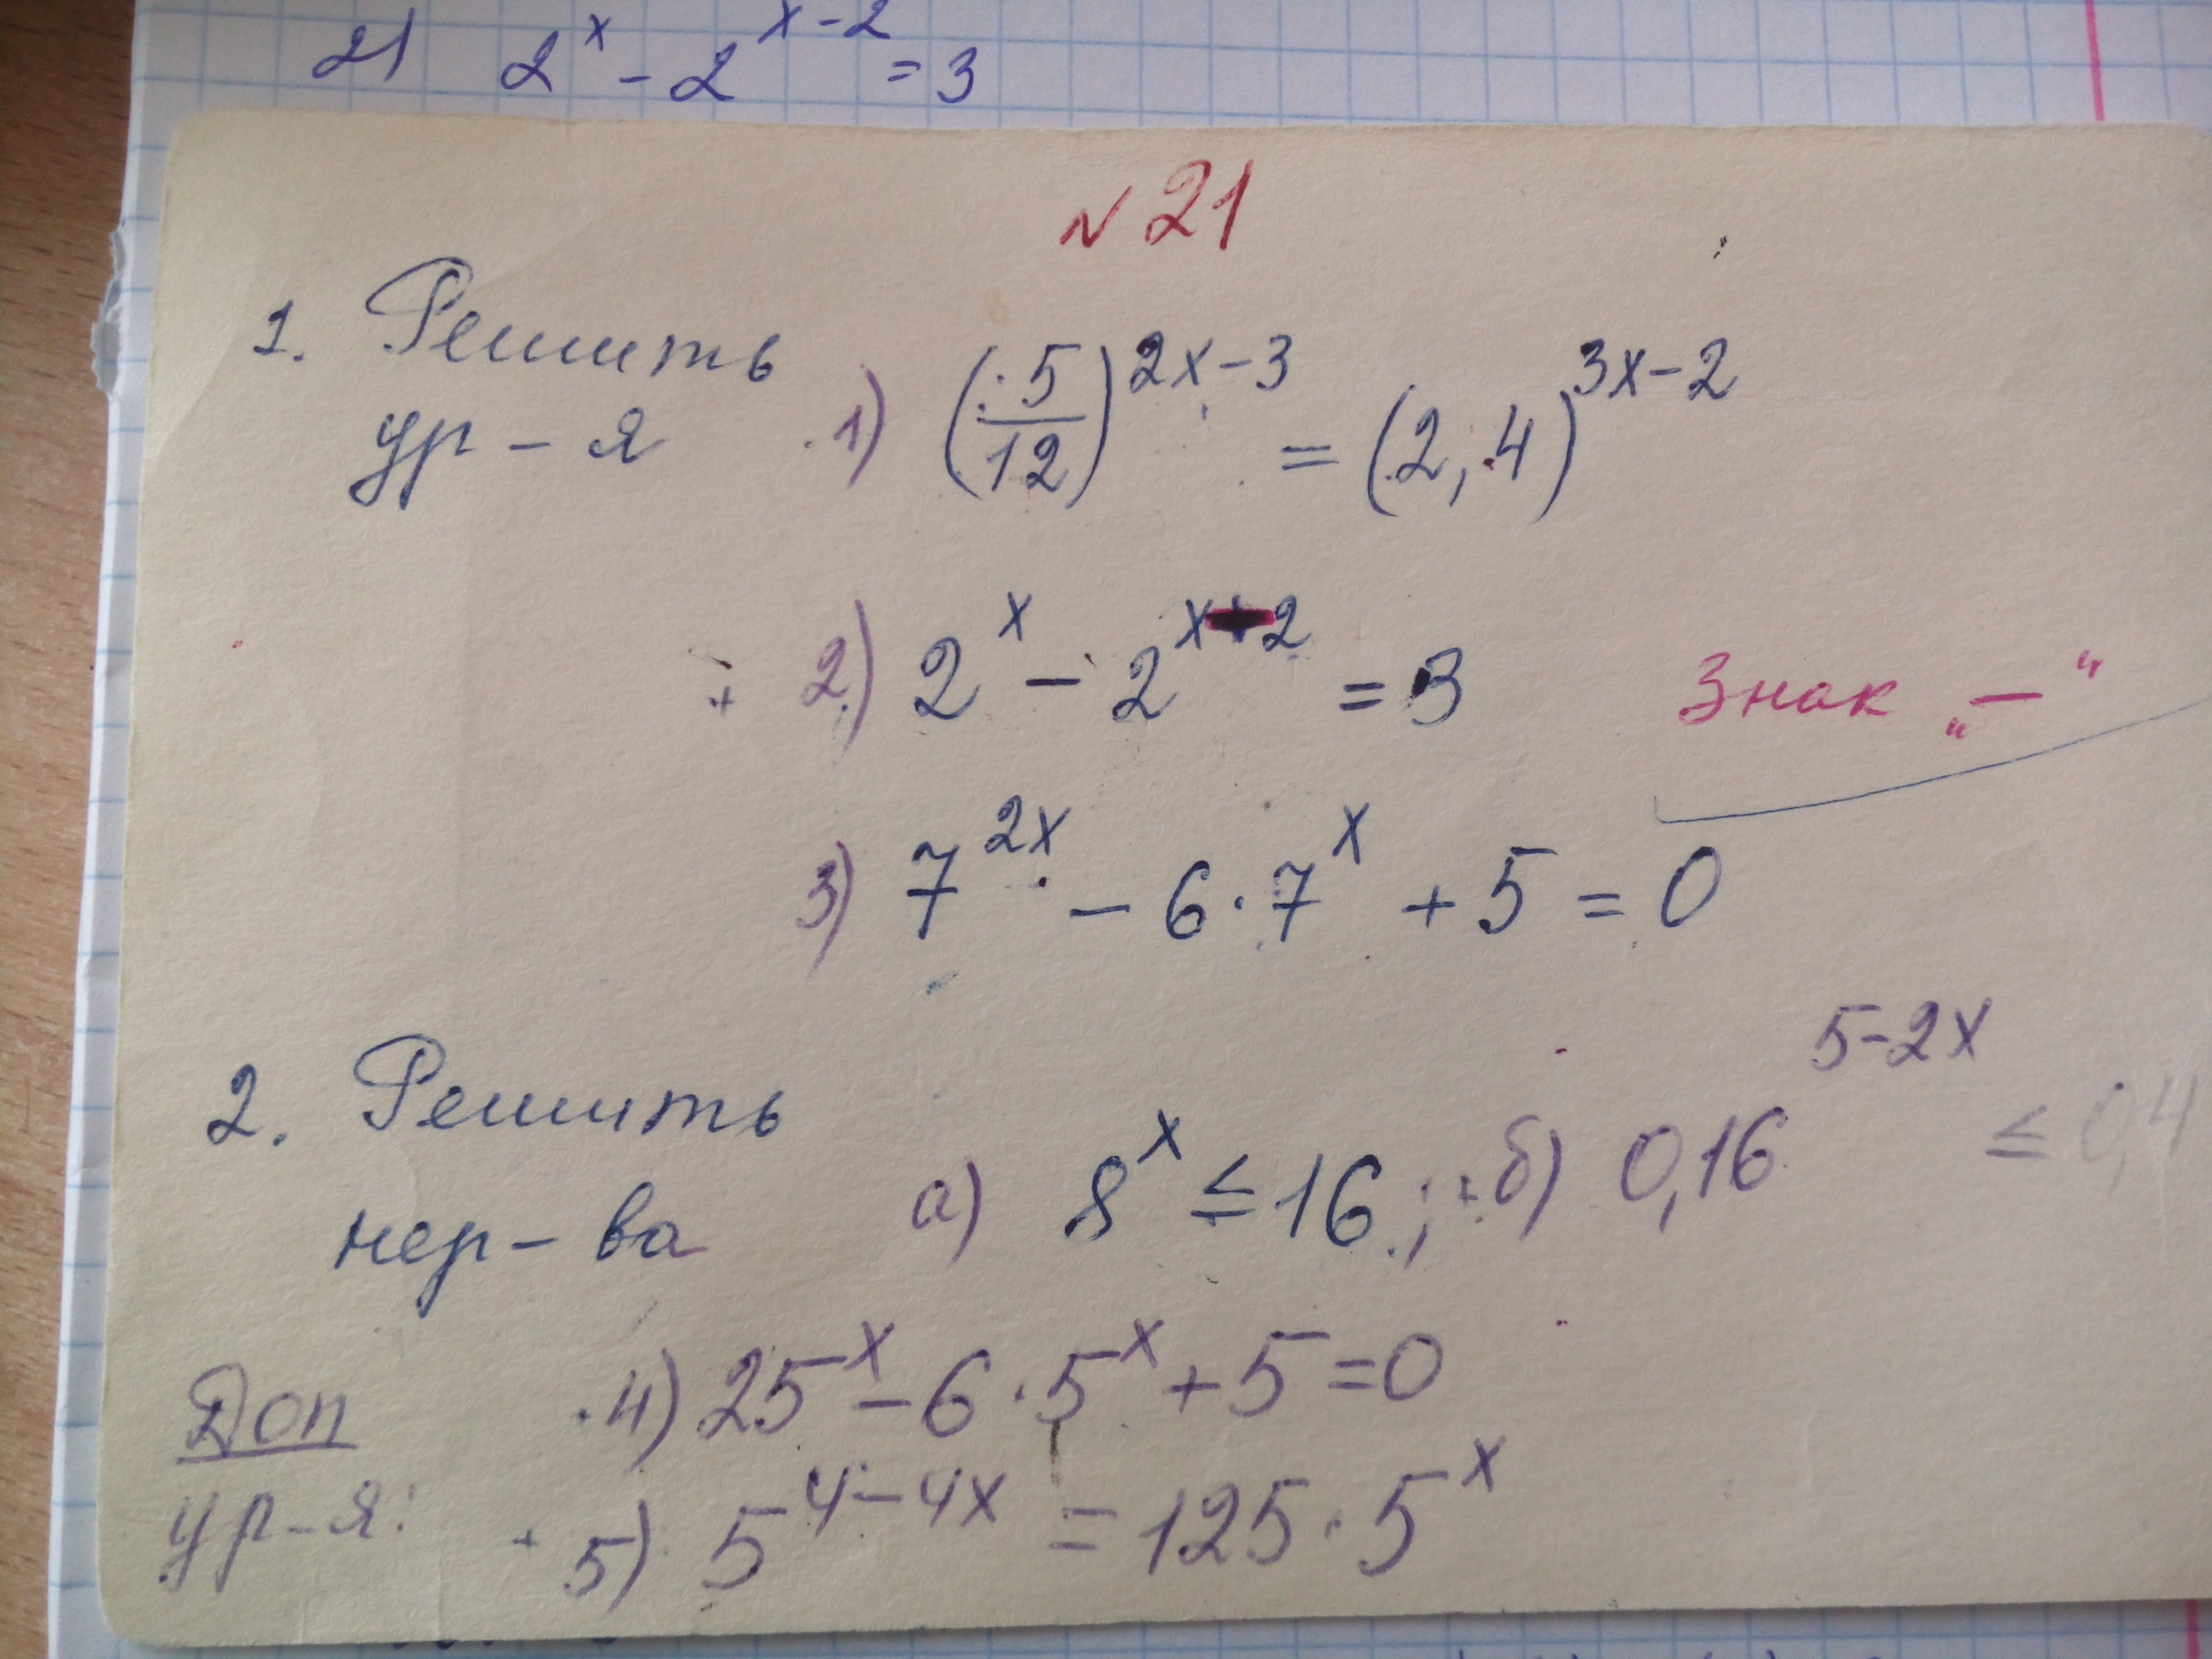 2) 2^x - 2^(x-2) = 3
№ 21
1. Решить
ур-я 1) (5/12)^(2x-3) = (2,4)^(3x-2)
2) 2^x - 2^(x-2) = 3 Знак „—“
3) 7^(2x) - 6·7^x + 5 = 0
2. Решить
нер-ва а) 8^x ≤ 16; б) 0,16^(5-2x) ≤ 0,4
Доп 4) 25^x - 6·5^x + 5 = 0
ур-я: 5) 5^(4-4x) = 125·5^x